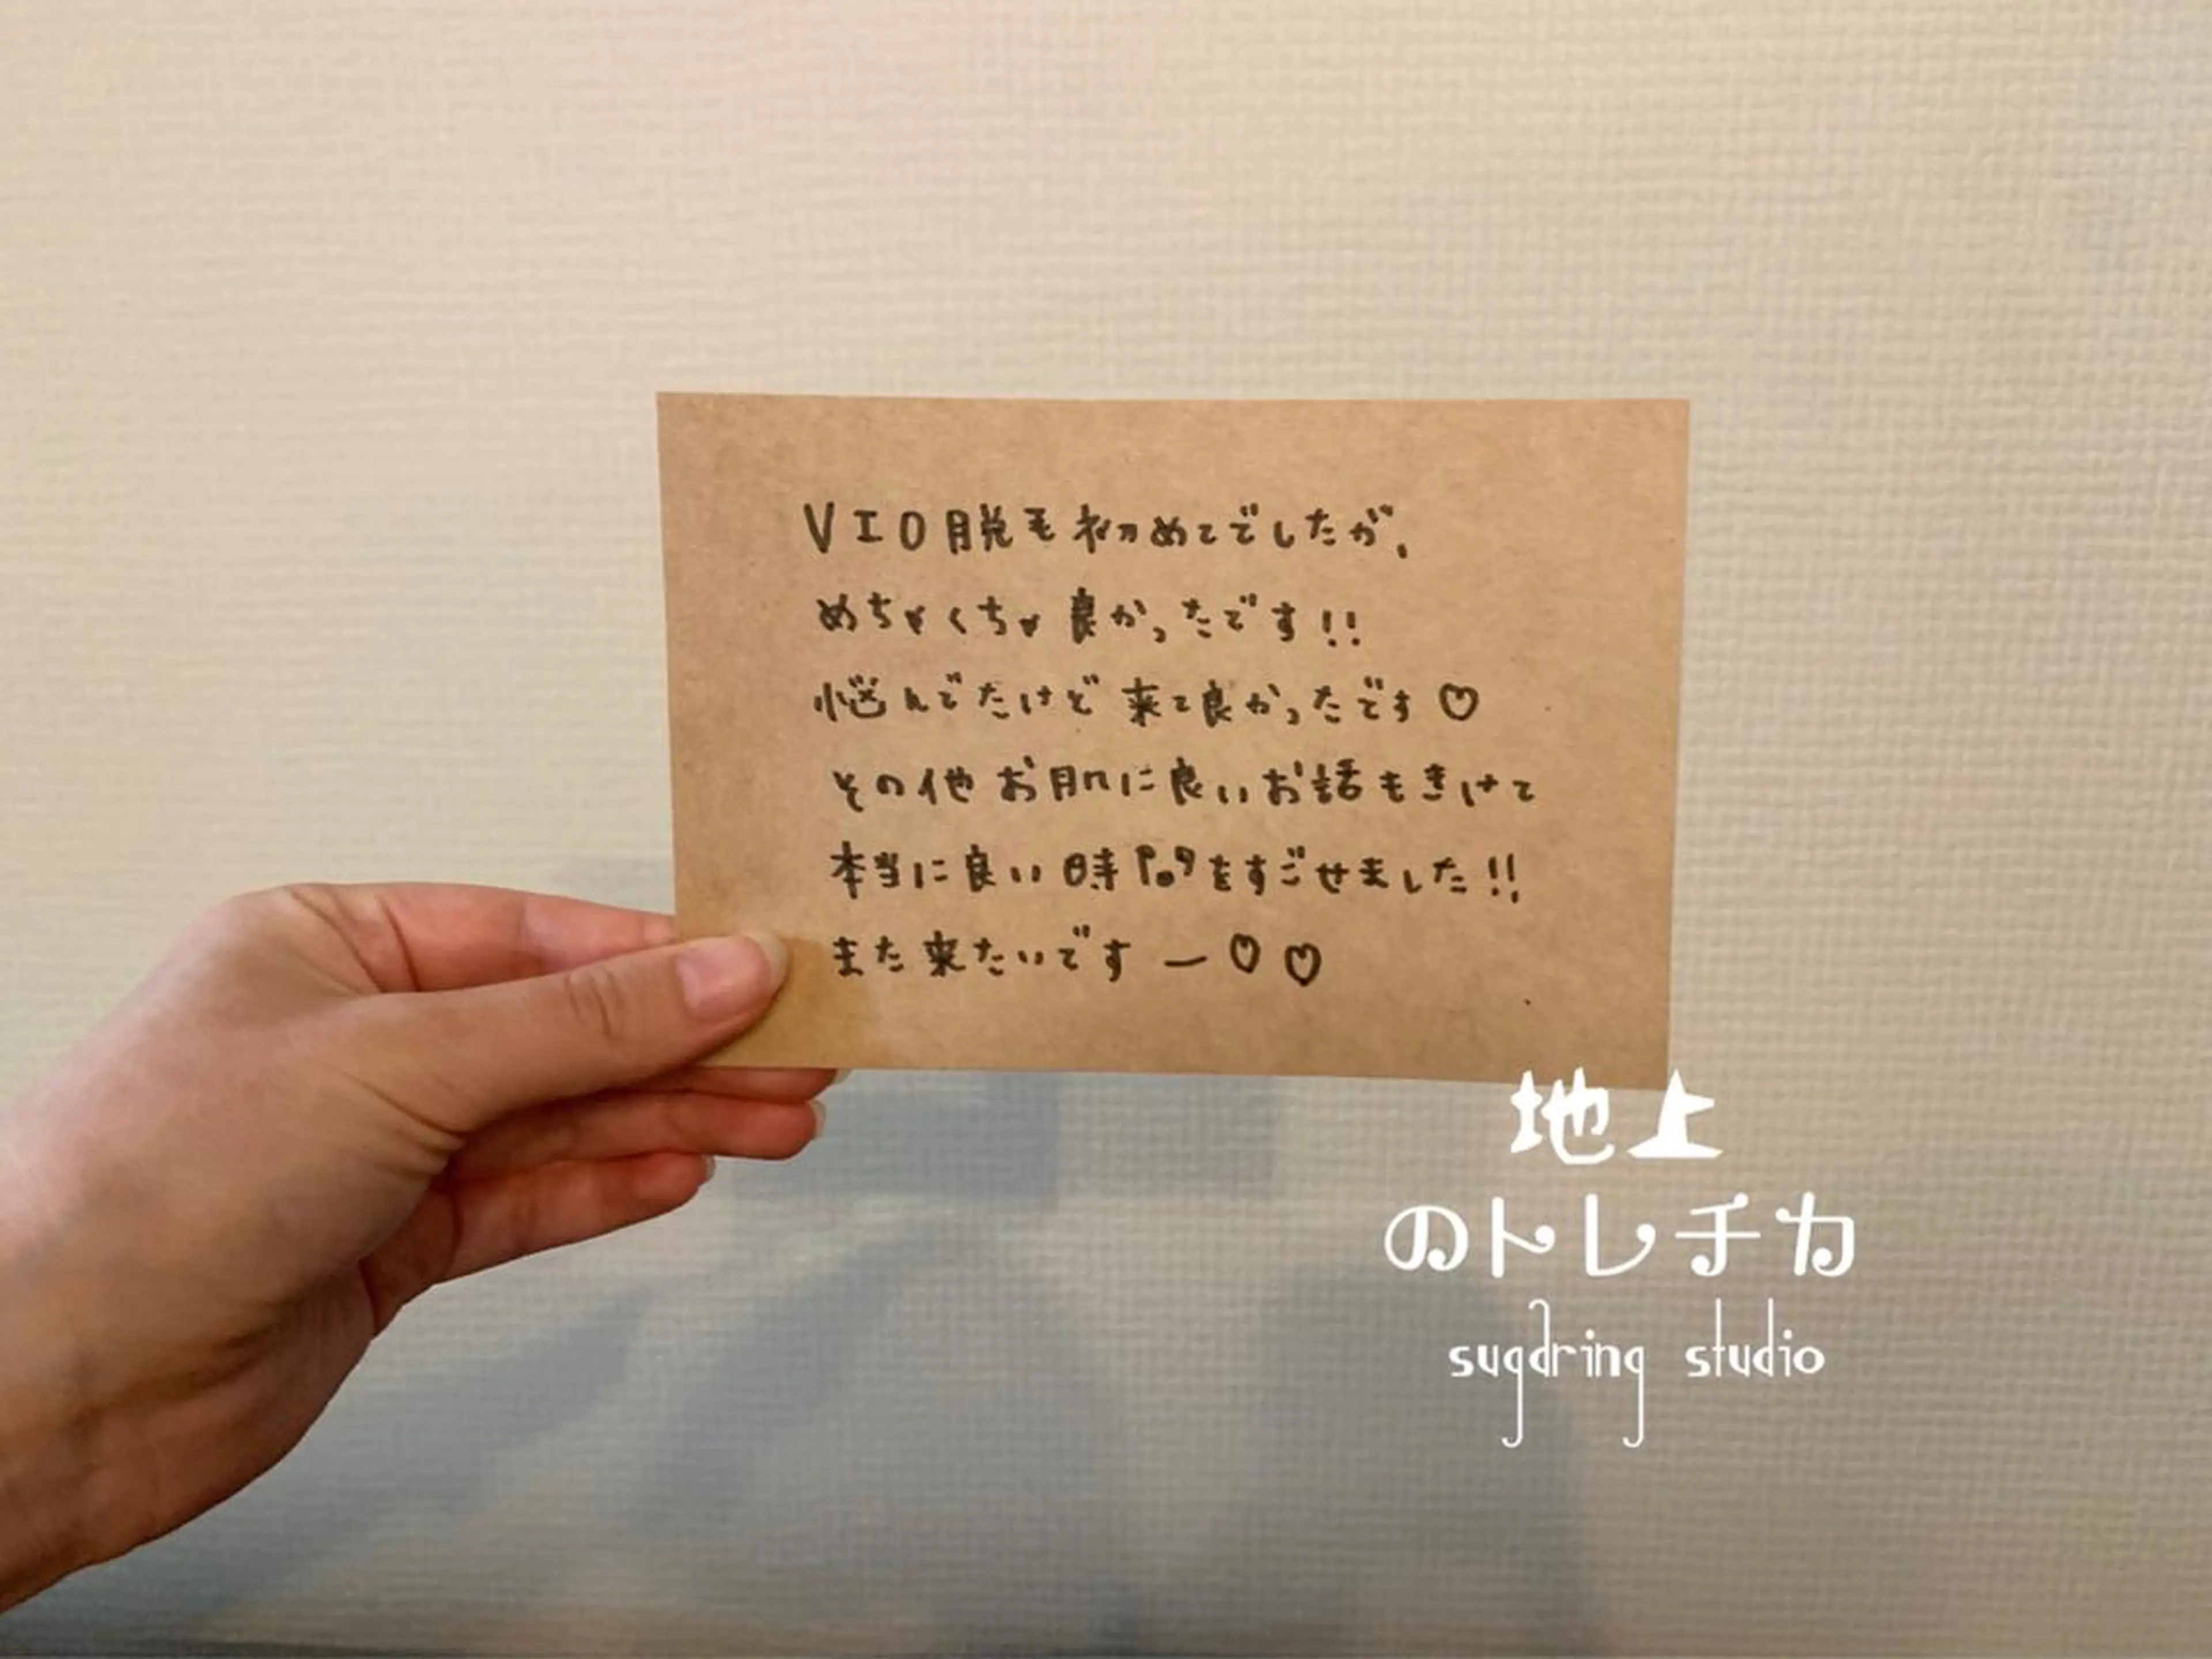 VIO脱毛初めてでしたが、
めちゃくちゃ良かったです!!
悩んでたけど来て良かったです♡
その他お肌に良いお話もきけて
本当に良い時間をすごせました!!
また来たいですー♡♡
地上
のトレチカ
sugaring studio